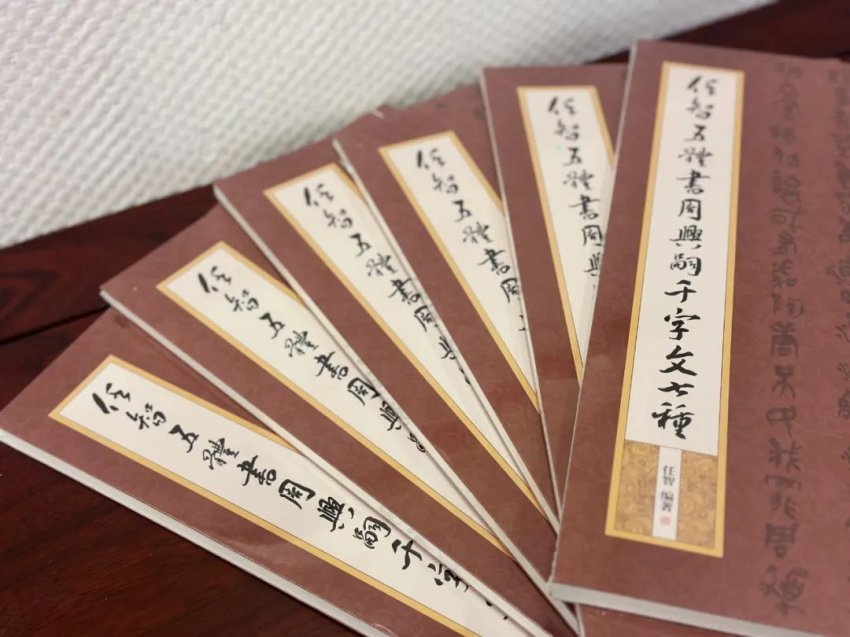 任智五體書周興嗣千字文七種
任智 编著
任智五體書周興
任智五體書周
任智五體書周
任智五體書周
任智五體書周興嗣千字